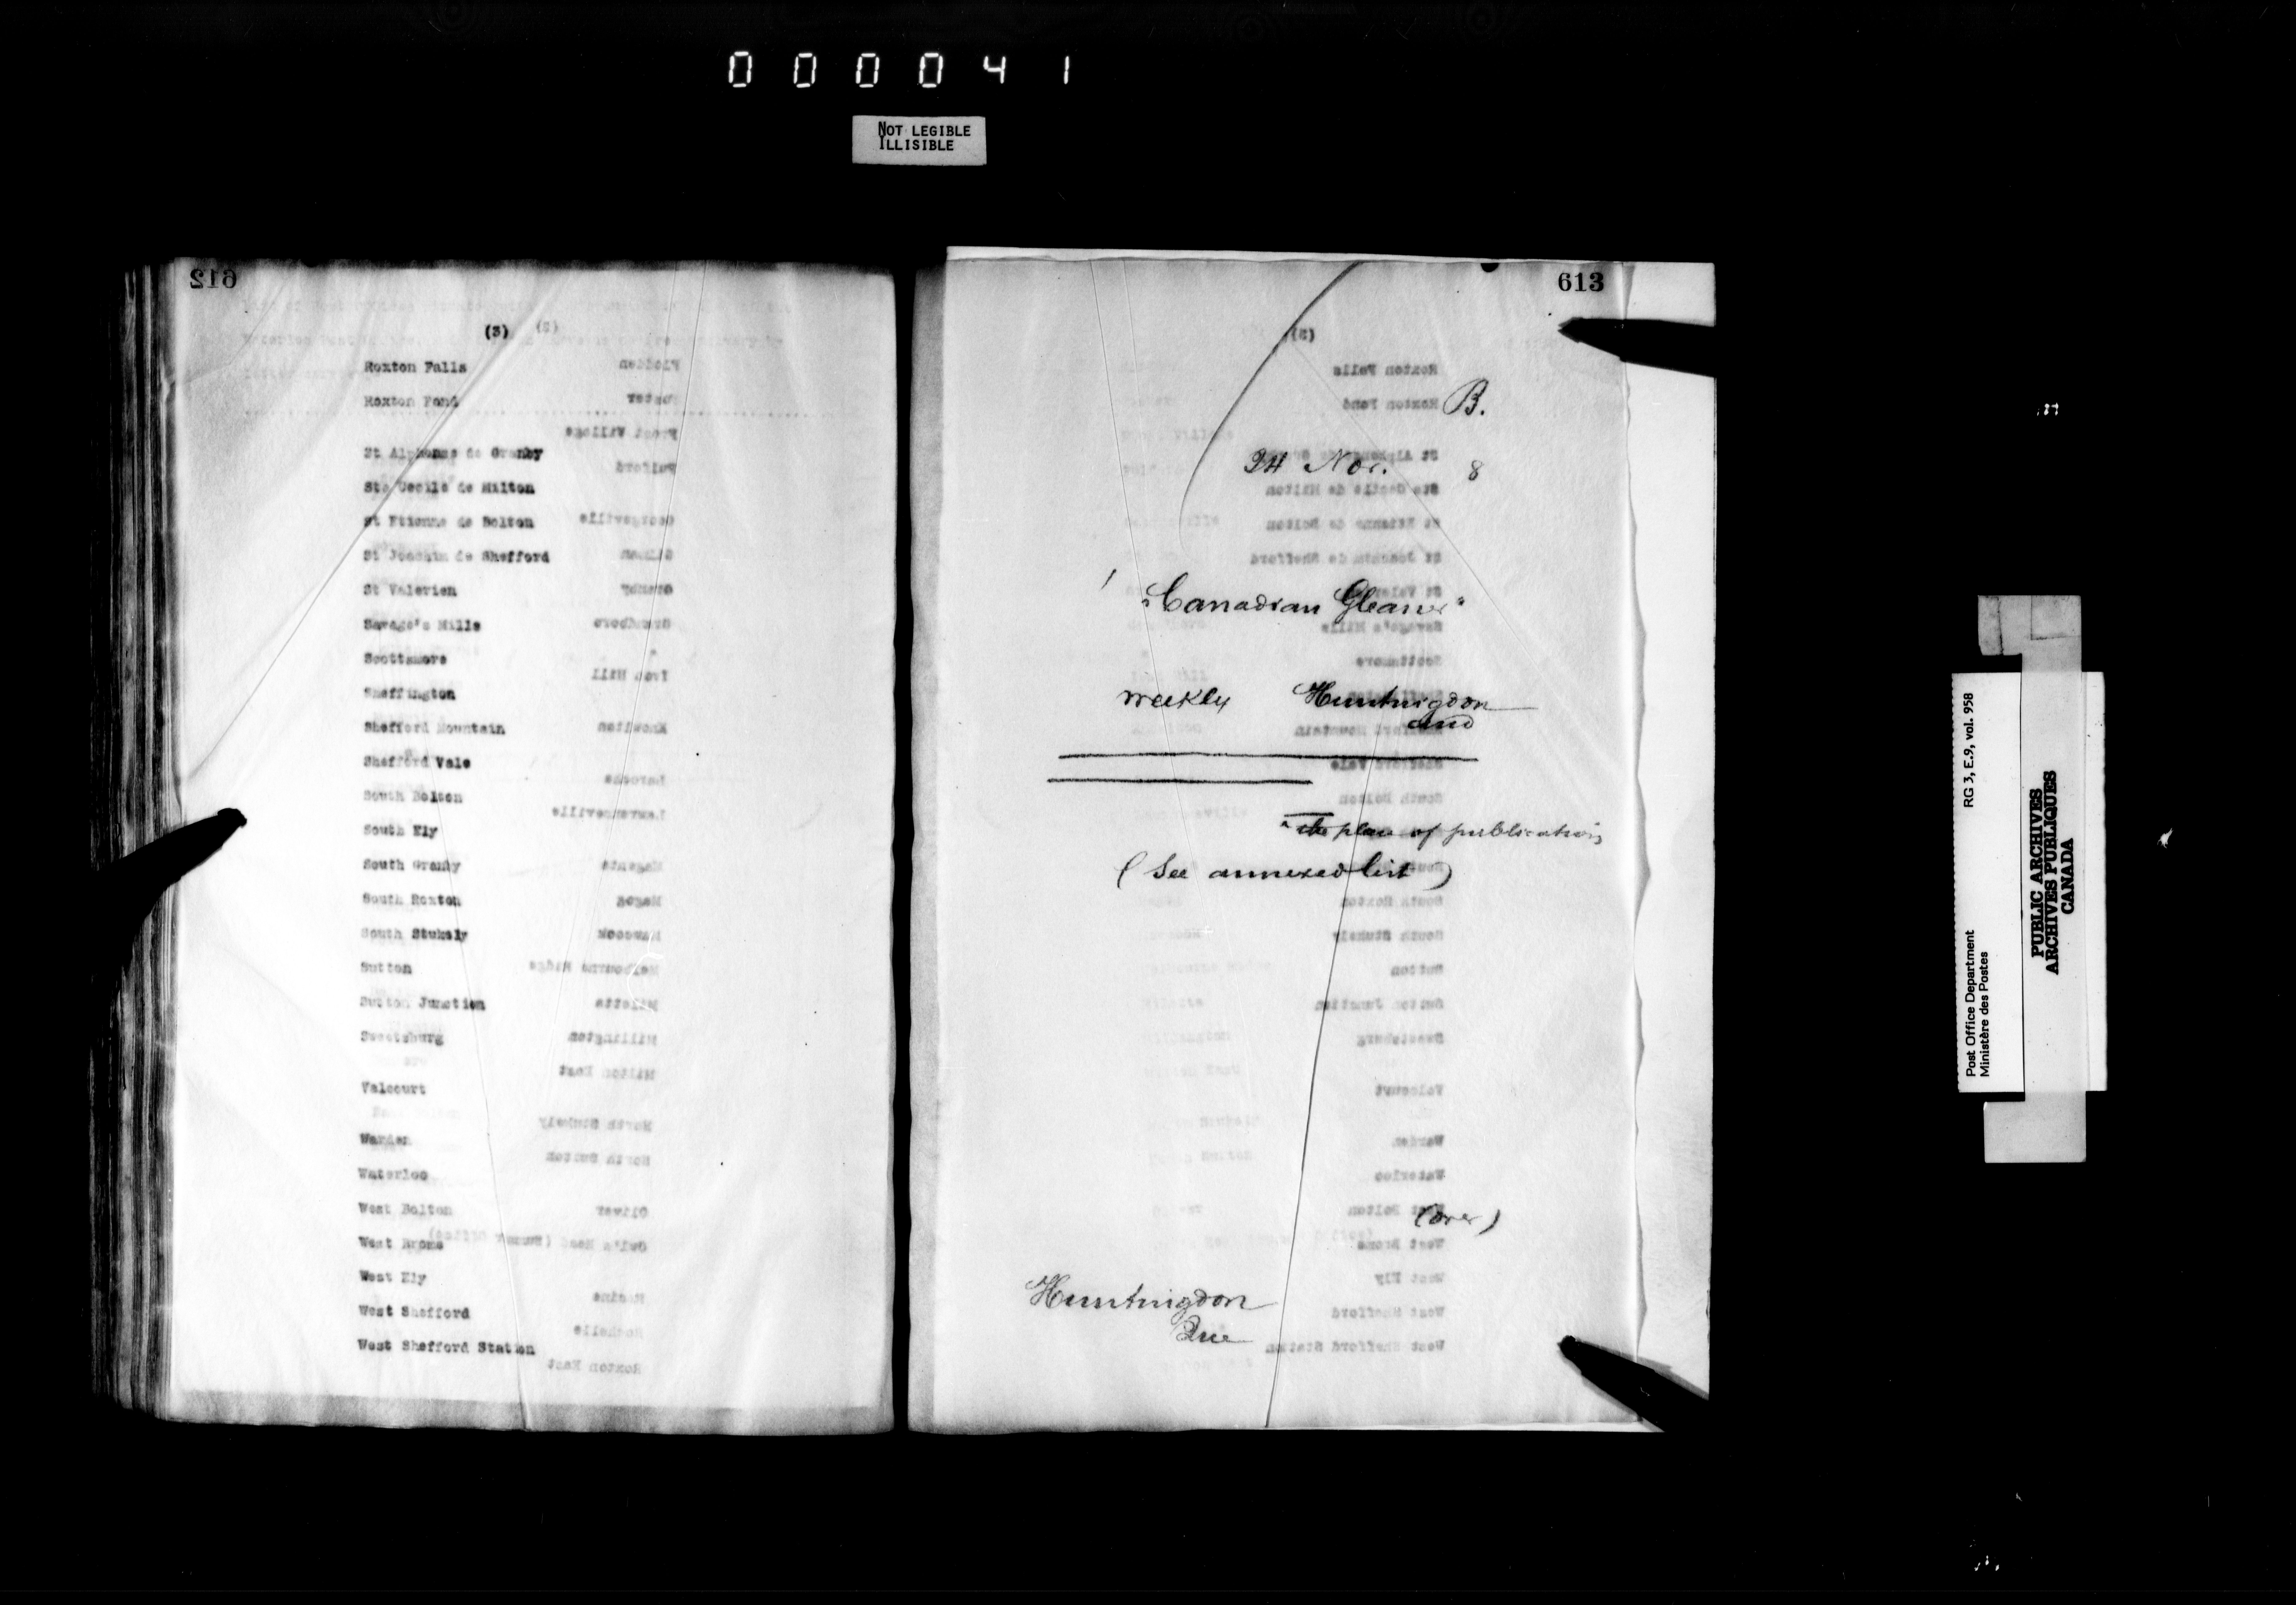 000041
NOT LEGIBLE
ILLISIBLE
612
(3)
Roxton Falls
Roxton Pond
St Alphonse de Granby
Ste Cecile de Milton
St Etienne de Bolton
St Joachim de Shefford
St Valerien
Savage's Mills
Scottsmore
Sheffington
Shefford Mountain
Shefford Vale
South Bolton
South Ely
South Granby
South Roxton
South Stukely
Sutton
Sutton Junction
Sweetsburg
Valcourt
Warden
Waterloo
West Bolton
West Brome
West Ely
West Shefford
West Shefford Station
613
B.
24 Nov. 8
"Canadian Gleaner"
weekly Huntingdon
and
the place of publication,
(See annexed list)
(over)
Huntingdon
Que
Post Office Department RG 3, E.9, vol. 958
Ministère des Postes
PUBLIC ARCHIVES
ARCHIVES PUBLIQUES
CANADA